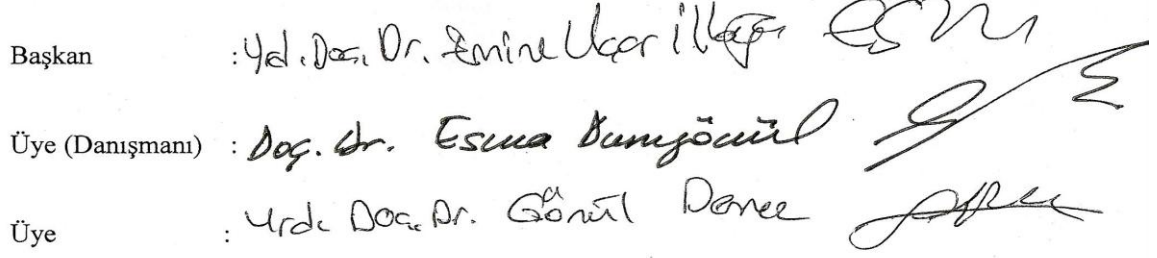 Başkan : Yrd. Doç. Dr. Emine Uçar
Üye (Danışmanı) : Doç. Dr. Esma Durugönül
Üye : Yrd. Doç. Dr. Gönül